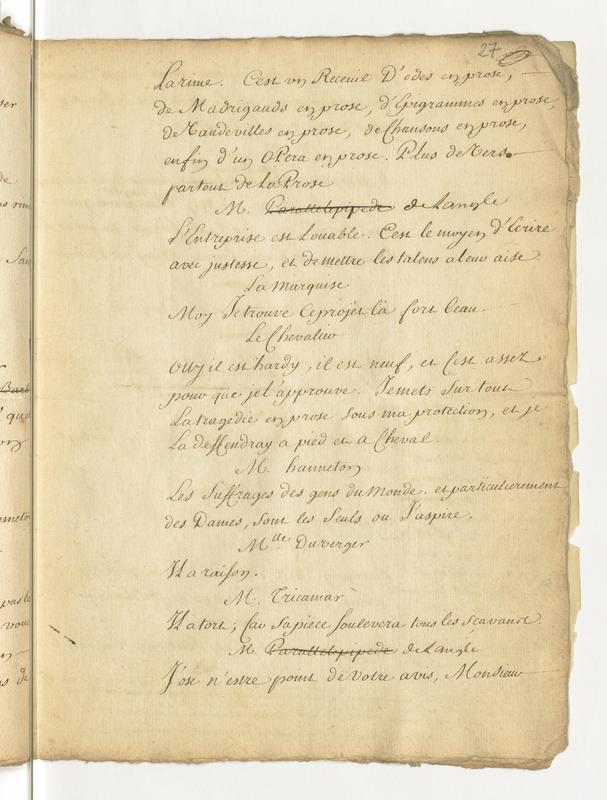 27
La rime. C'est un Receuil D'odes en prose,
de Madrigauds en prose, d'Epigrammes en prose,
de Vaudevilles en prose, de Chansons en prose,
enfin d'un Opera en prose. Plus de Vers.
partout de la Prose
M. Parallelepipede de Langle
L'Entreprise est Louable. C'est le moyen d'Ecrire
avec justesse, et de mettre les talens a leur aise.
La Marquise
Moy Je trouve ce projet là fort beau.
Le Chevalier
Ouy il est hardy, il est neuf, et C'est assez
pour que je l'approuve. Je mets sur tout
La tragedie en prose sous ma protection, et je
La deffendray a pied et a Cheval.
M. hanneton
Les Suffrages des gens du Monde. et particulierement
des Dames, sont les Seuls ou J'aspire.
Mlle Duverger
Il a raison.
M. Tricamar
Il a tort; Car Sa piece soulevera tous les scavants.
M. Parallelepipede de Langle
J'ose n'estre point de Votre avis, Monsieur